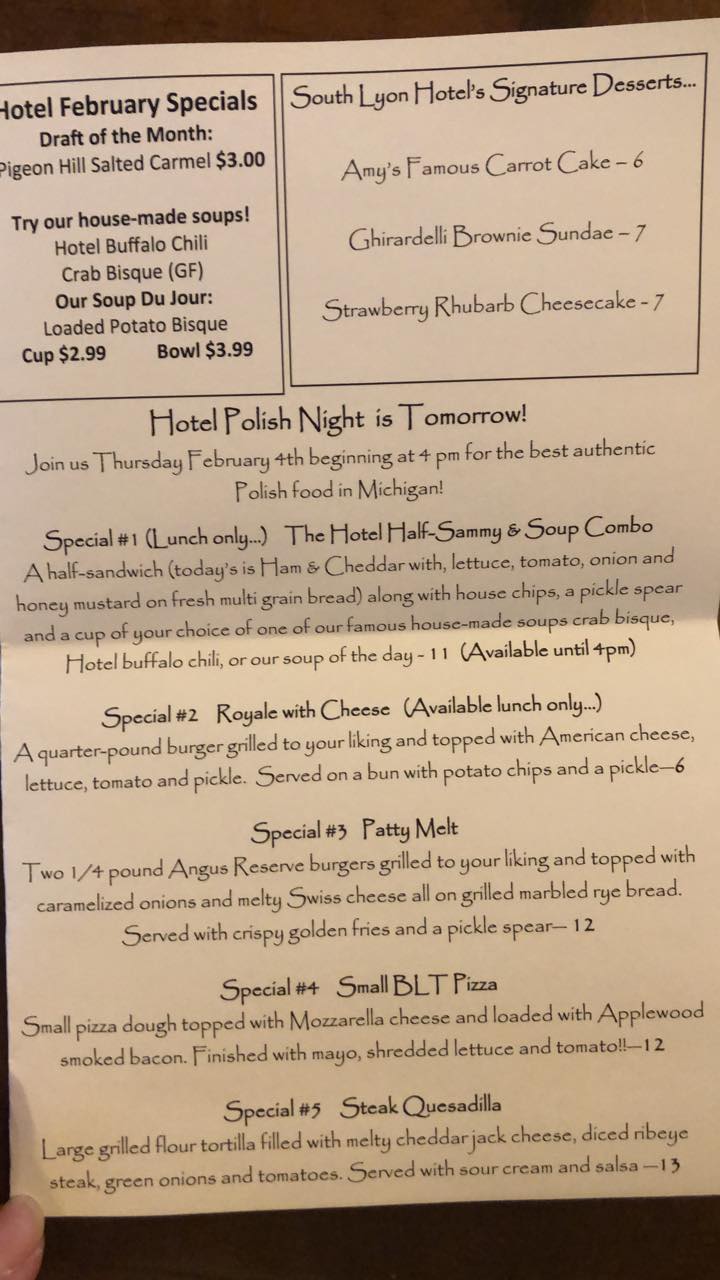 Hotel February Specials
Draft of the Month:
Pigeon Hill Salted Carmel $3.00
Try our house-made soups!
Hotel Buffalo Chili
Crab Bisque (GF)
Our Soup Du Jour:
Loaded Potato Bisque
Cup $2.99 Bowl $3.99
South Lyon Hotel's Signature Desserts...
Amy's Famous Carrot Cake – 6
Ghirardelli Brownie Sundae – 7
Strawberry Rhubarb Cheesecake - 7
Hotel Polish Night is Tomorrow!
Join us Thursday February 4th beginning at 4 pm for the best authentic
Polish food in Michigan!
Special #1 (Lunch only...) The Hotel Half-Sammy & Soup Combo
A half-sandwich (today's is Ham & Cheddar with, lettuce, tomato, onion and
honey mustard on fresh multi grain bread) along with house chips, a pickle spear
and a cup of your choice of one of our famous house-made soups crab bisque,
Hotel buffalo chili, or our soup of the day - 11 (Available until 4pm)
Special #2 Royale with Cheese (Available lunch only...)
A quarter-pound burger grilled to your liking and topped with American cheese,
lettuce, tomato and pickle. Served on a bun with potato chips and a pickle—6
Special #3 Patty Melt
Two 1/4 pound Angus Reserve burgers grilled to your liking and topped with
caramelized onions and melty Swiss cheese all on grilled marbled rye bread.
Served with crispy golden fries and a pickle spear— 12
Special #4 Small BLT Pizza
Small pizza dough topped with Mozzarella cheese and loaded with Applewood
smoked bacon. Finished with mayo, shredded lettuce and tomato!!—12
Special #5 Steak Quesadilla
Large grilled flour tortilla filled with melty cheddar jack cheese, diced ribeye
steak, green onions and tomatoes. Served with sour cream and salsa —13